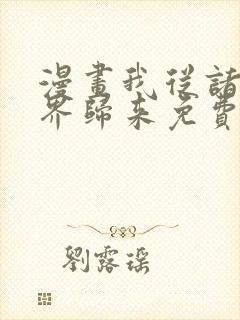 漫畫我從諸
界歸來免費
劉露瑤